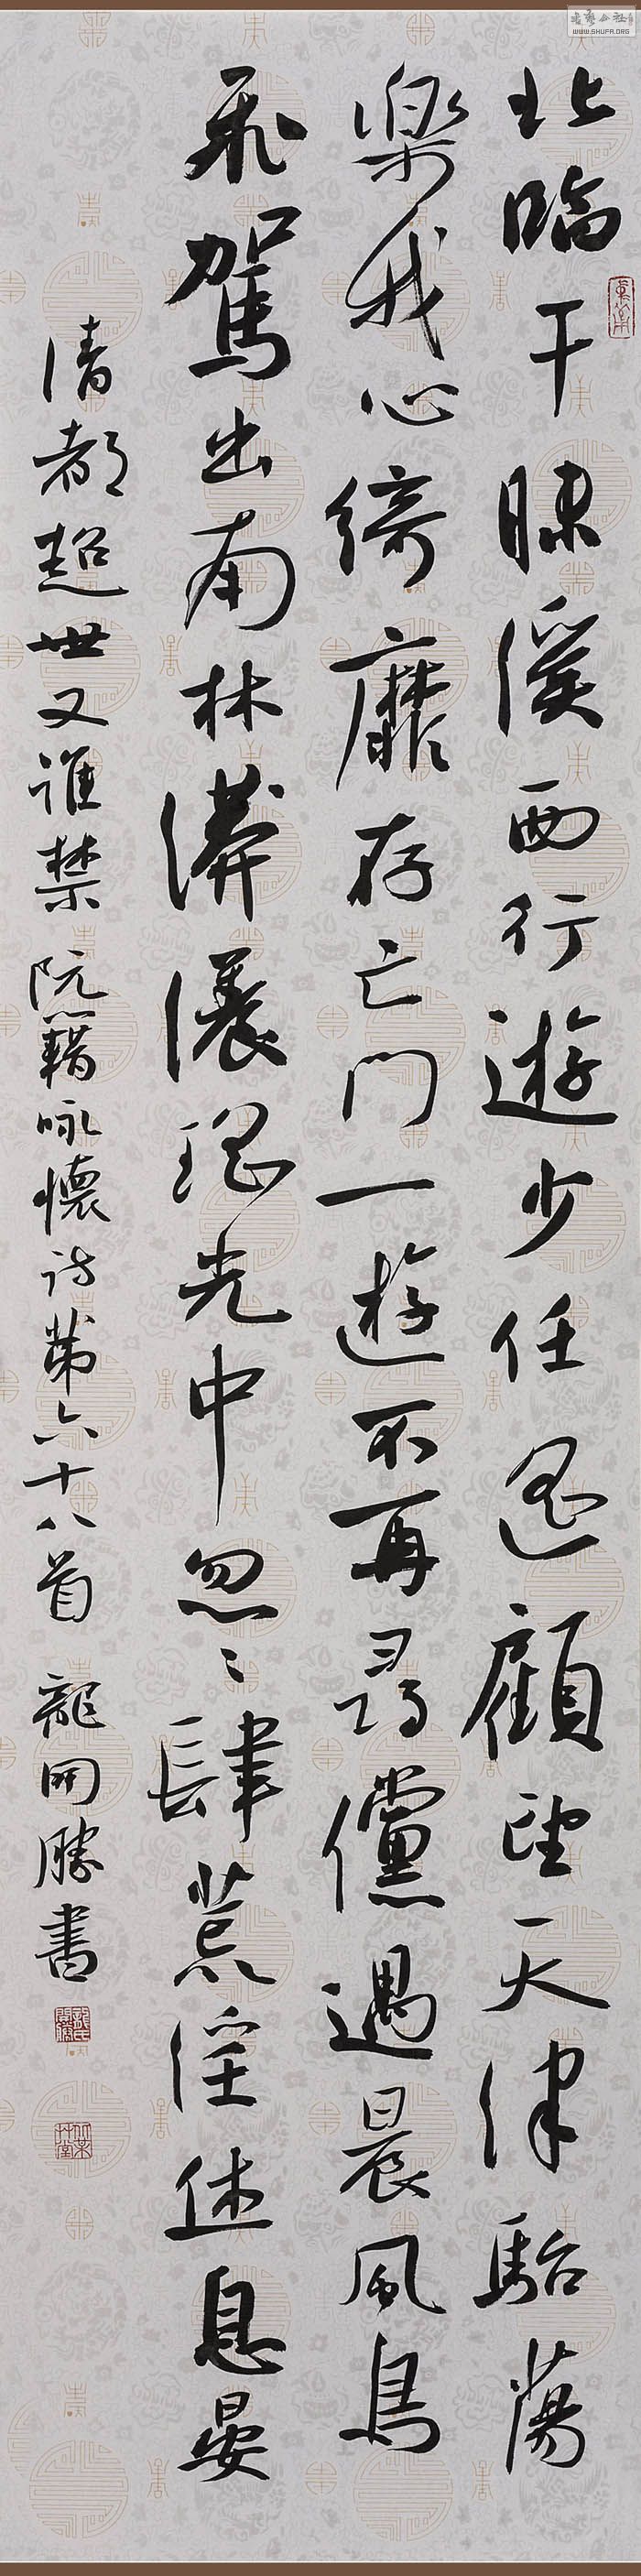 北臨干昧溪西行遊少任遙顧望天津駘蕩
樂我心綺靡存亡門一遊不再尋儻遇晨風鳥
飛駕出南林漭瀁瑤光中忽〻肆荒淫休息晏
清都超世又誰禁 阮籍咏懷詩第六十八首 龍開勝書
WWW.SHUFA.ORG